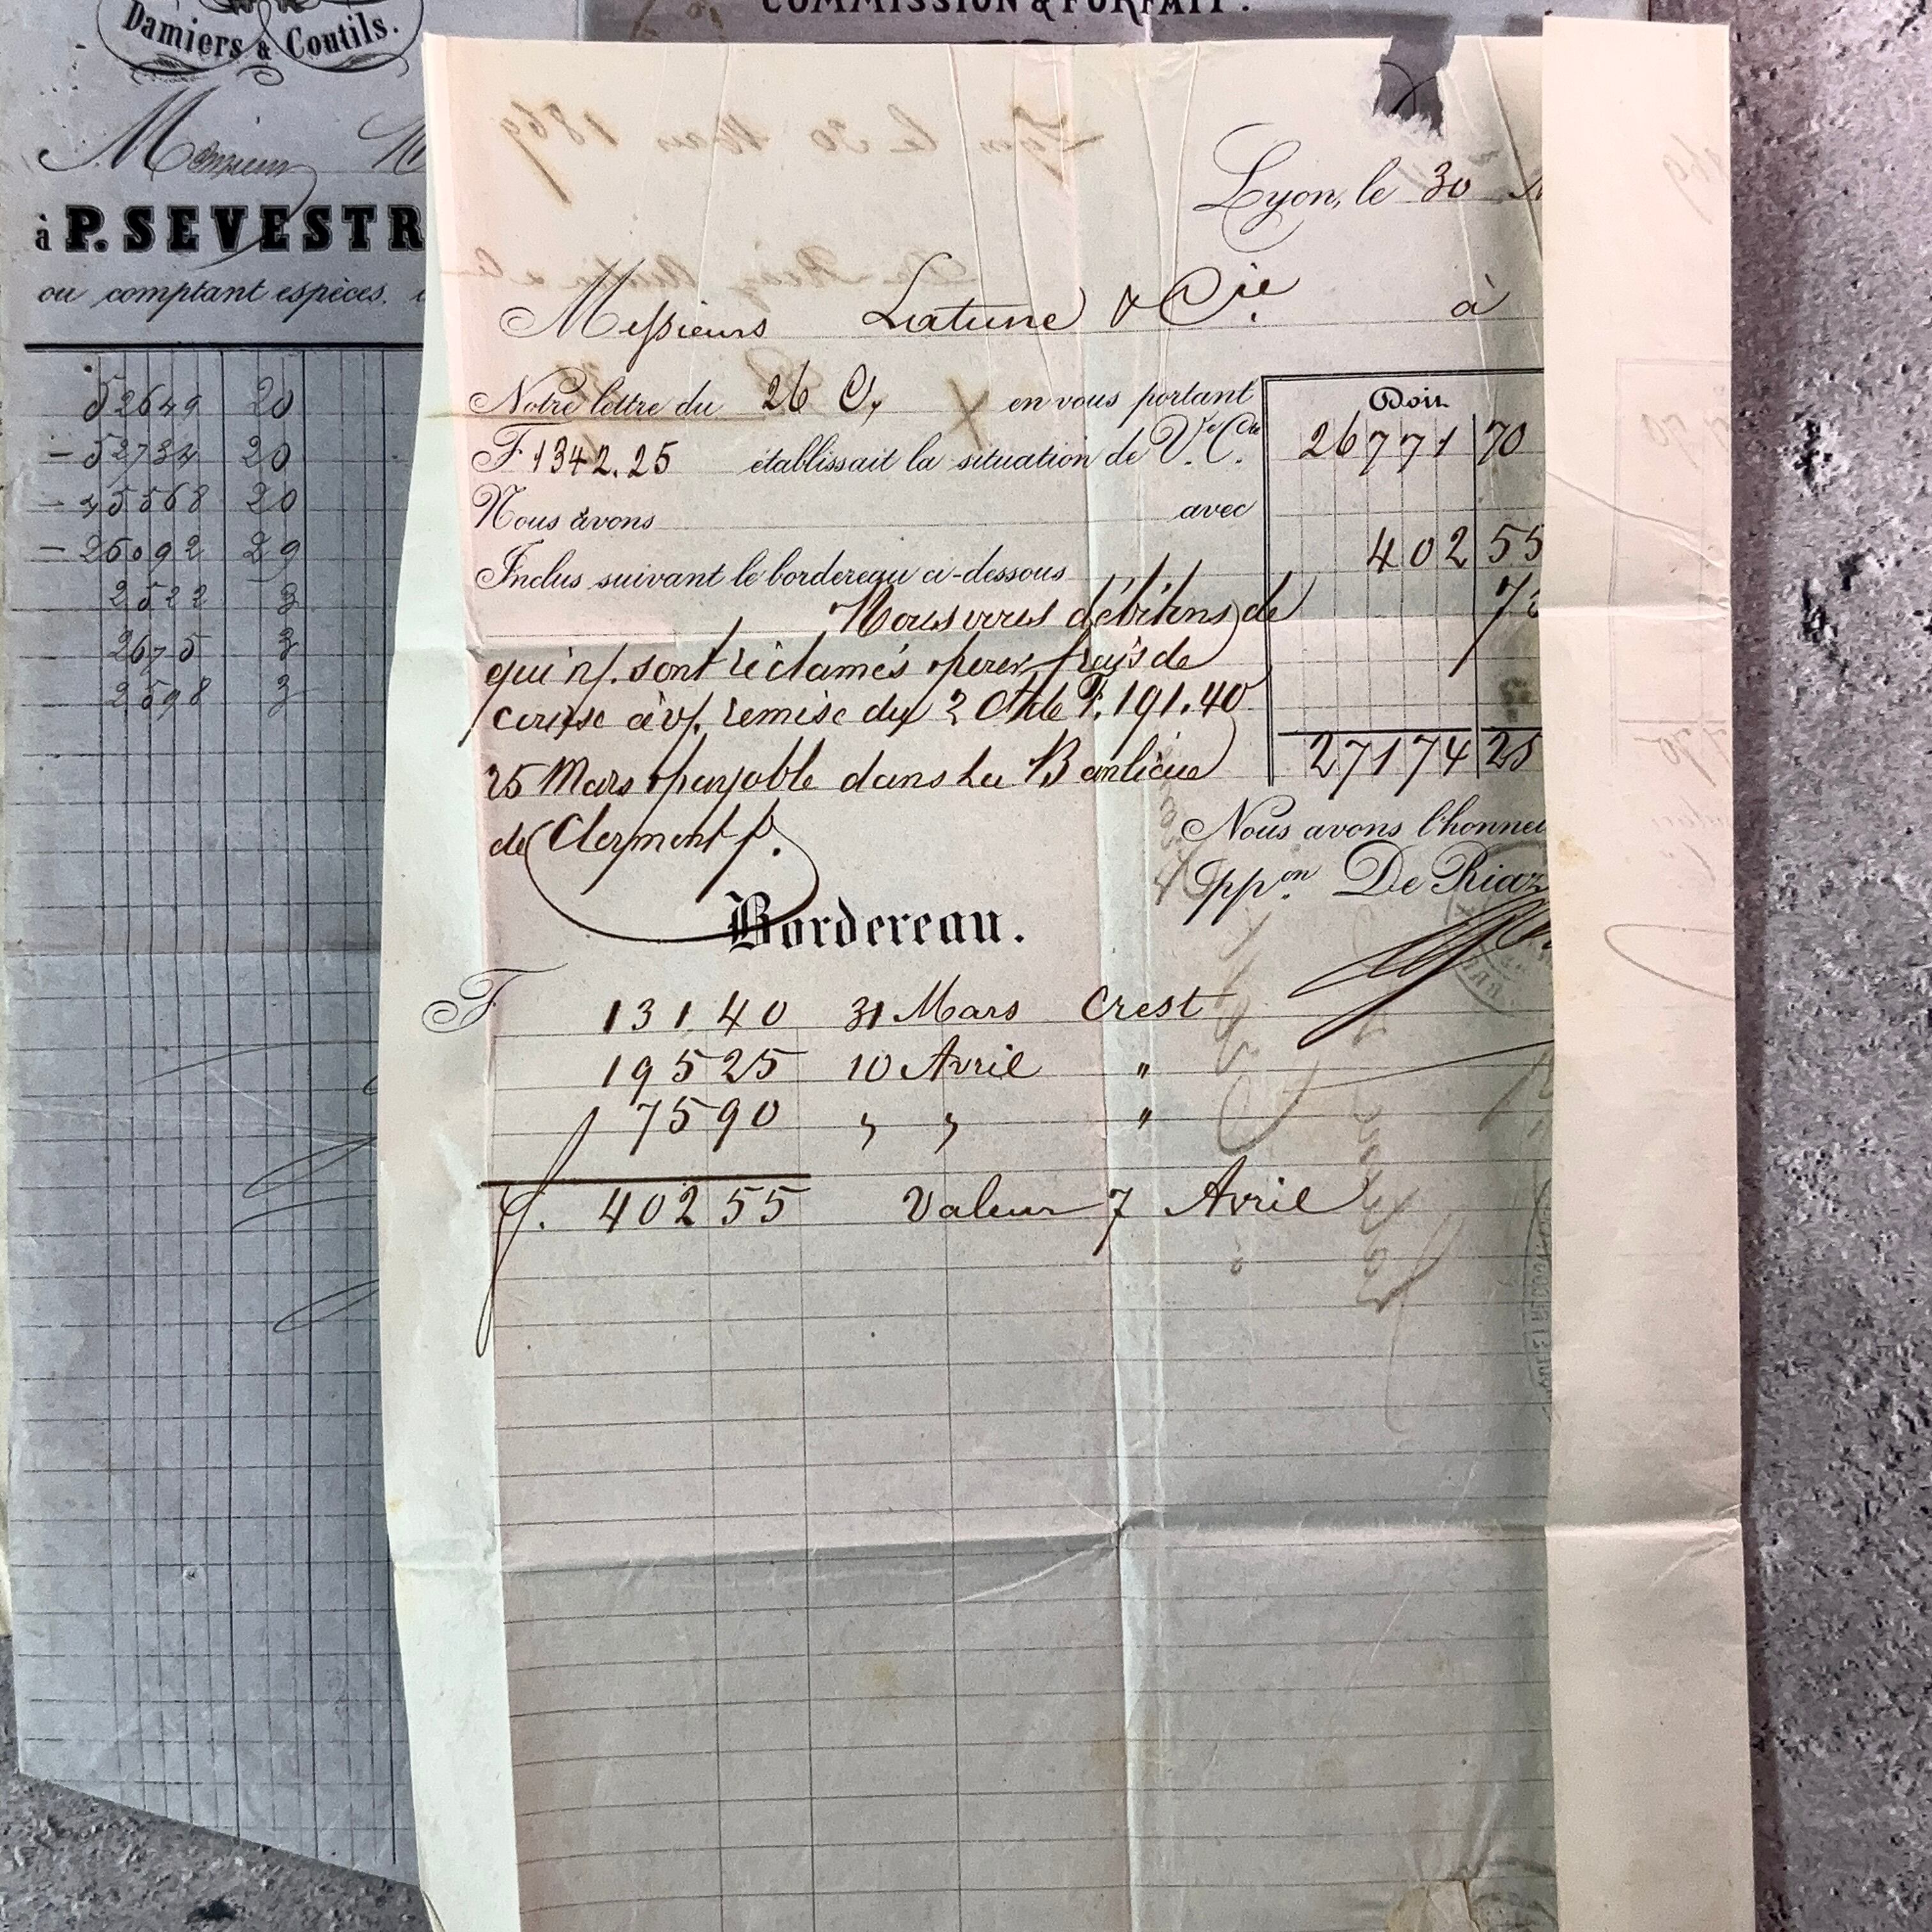 COMMISSION & FORFAIT.
Damiers & Coutils.
Monsieur
à P. SEVESTR
ou comptant espèces.
52649 20
- 52734 20
- 45568 20
- 26092 29
2522 3
2675 3
2598 3
Lyon, le 30
Messieurs Latune & Cie. à
Notre lettre du 26 Ct, en vous portant
F 1342.25 établissait la situation de V. Cte
Nous avons avec
Inclus suivant le bordereau ci-dessous
Doit
26771 70
402 55
27174 25
Nous vous débitons de
qui n/. sont réclamés pour frais de
course à v/. remise du 2 Ct de F. 191.40
25 Mars payable dans la Banlieue
de Clermont f.
Nous avons l'honneu
ppon. De Riaz
Bordereau.
F 131.40 31 Mars Crest
195 25 10 Avril "
75 90 " " "
f. 402 55 Valeur 7 Avril